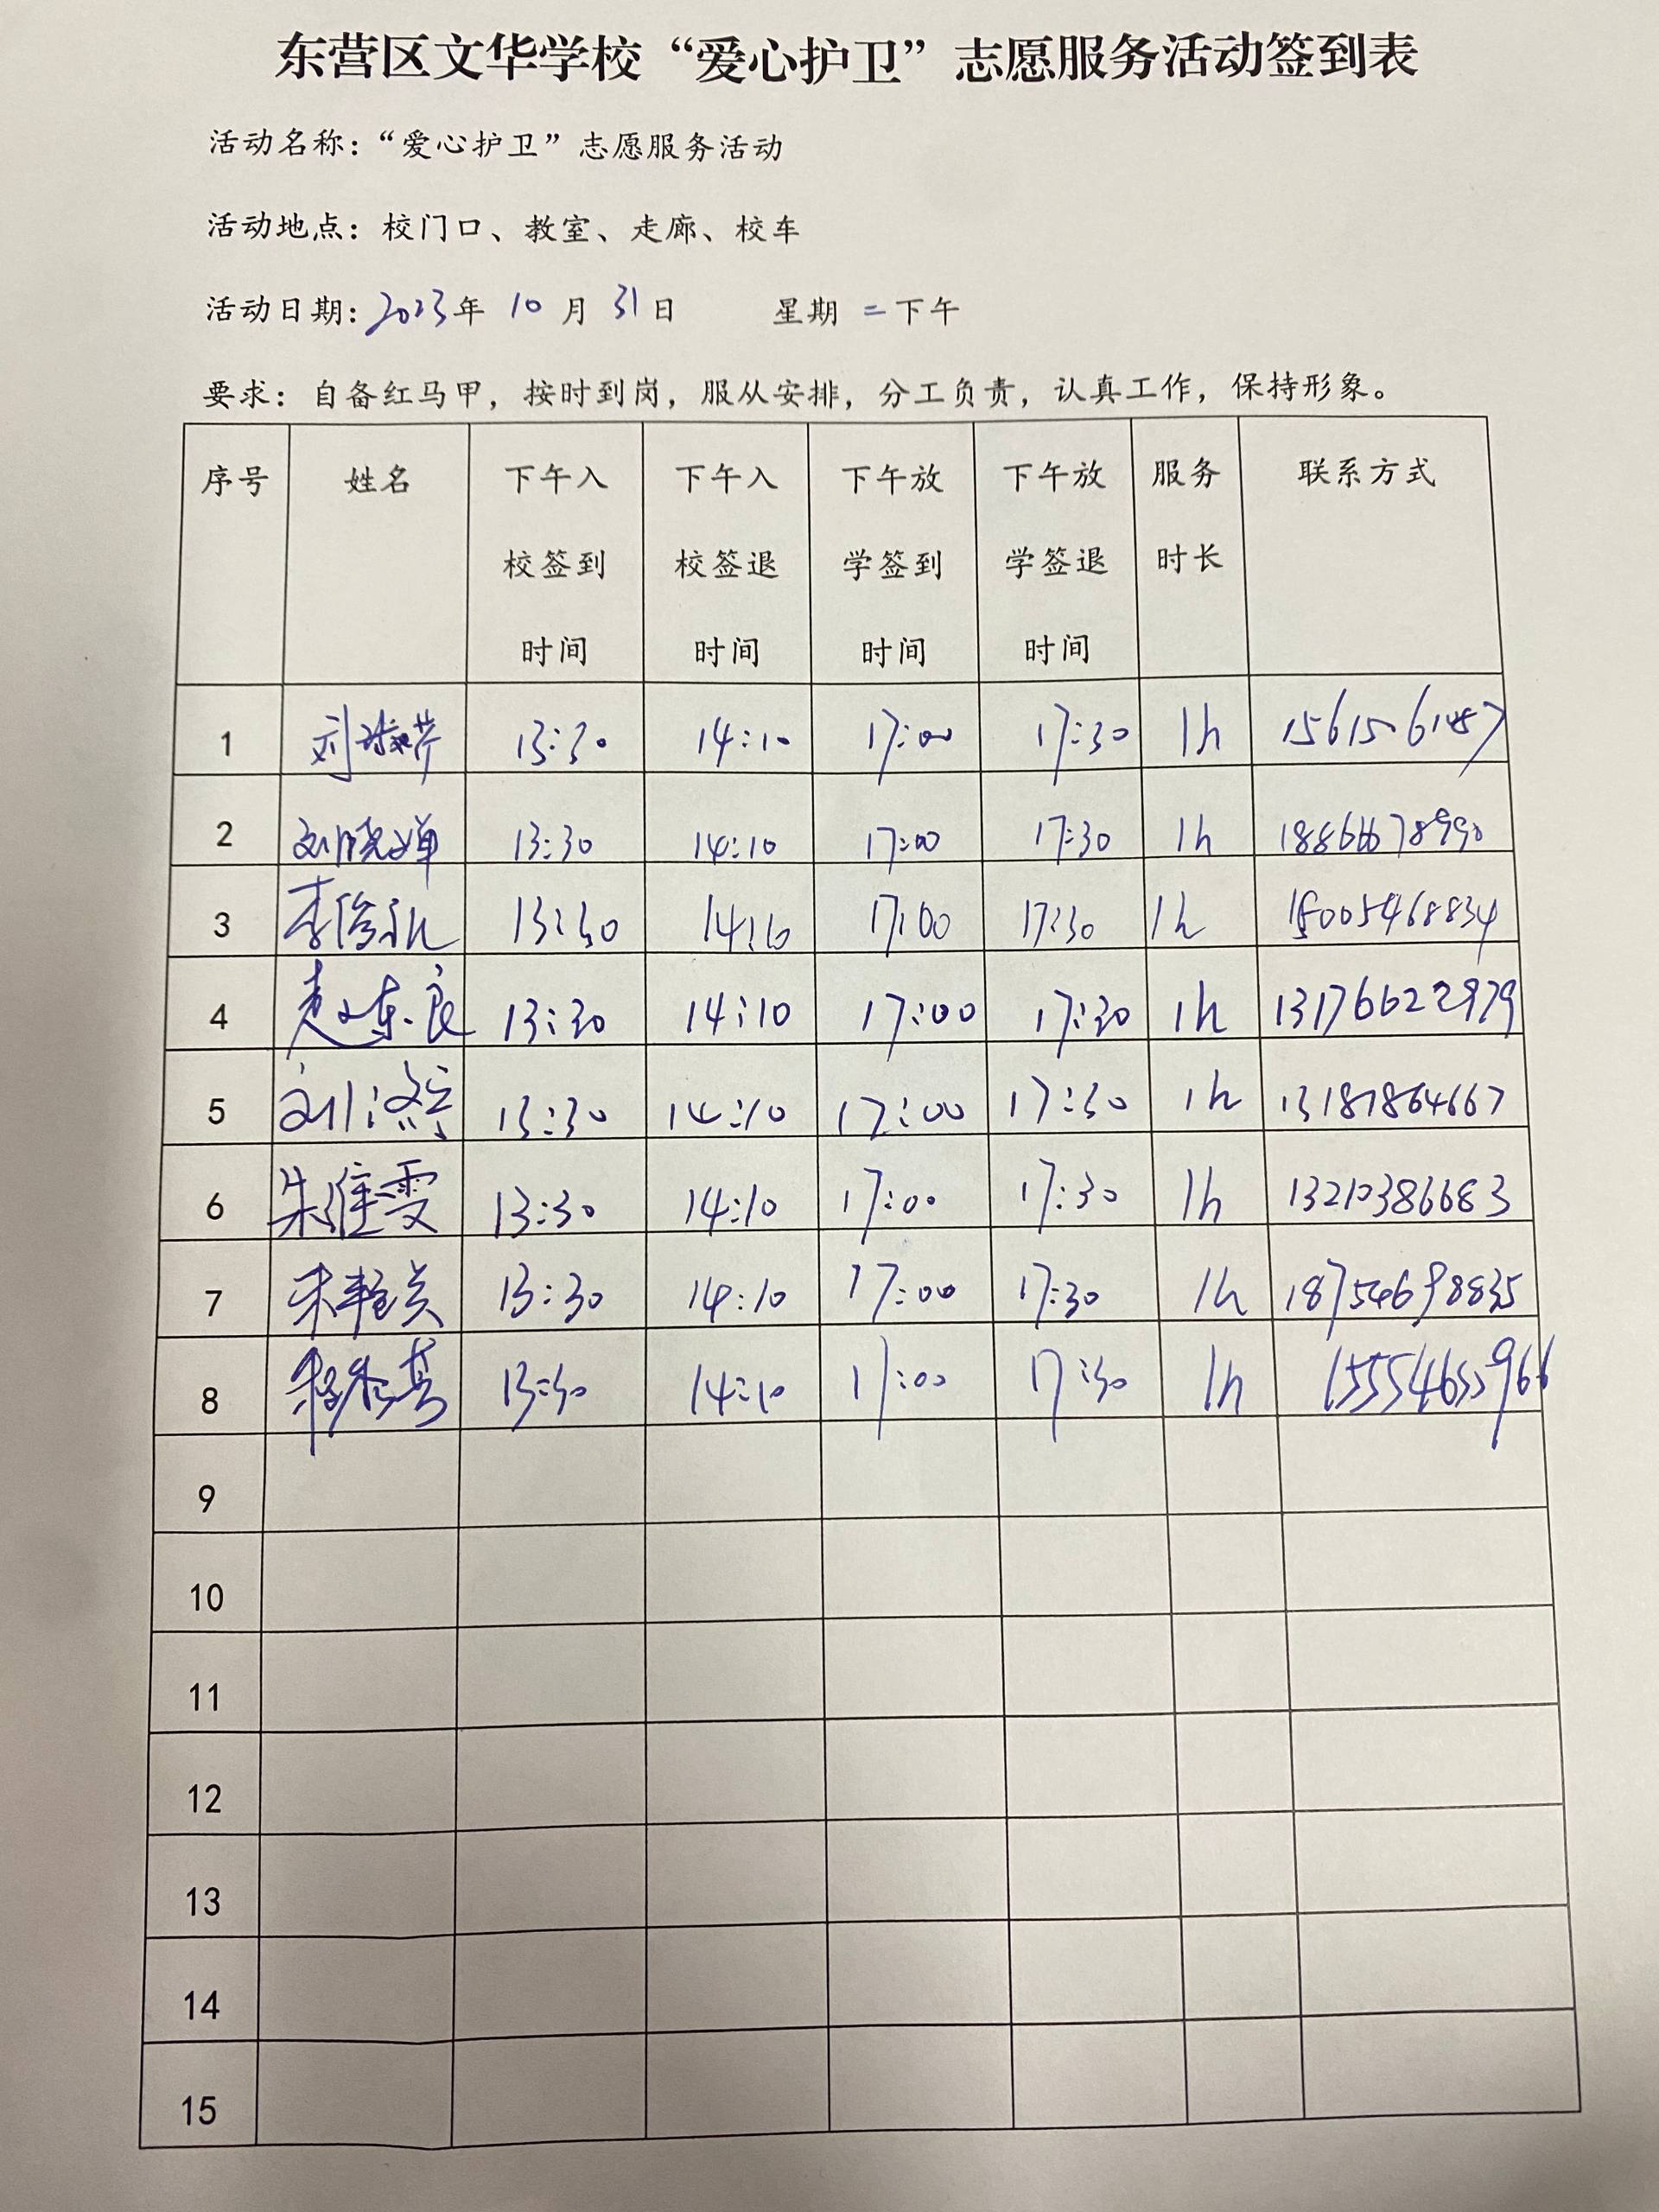 东营区文华学校“爱心护卫”志愿服务活动签到表
活动名称：“爱心护卫”志愿服务活动
活动地点：校门口、教室、走廊、校车
活动日期：2023年 10 月 31 日 星期 二 下午
要求：自备红马甲，按时到岗，服从安排，分工负责，认真工作，保持形象。
序号 姓名 下午入校签到时间 下午入校签退时间 下午放学签到时间 下午放学签退时间 服务时长 联系方式
1 刘 13:30 14:10 17:00 17:30 1h
2 刘晓婵 13:30 14:10 17:00 17:30 1h 18866678990
3 李俊 13:30 14:10 17:00 17:30 1h 15005468834
4 13:30 14:10 17:00 17:30 1h 13176622979
5 刘 13:30 14:10 17:00 17:30 1h 13181864667
6 朱维雯 13:30 14:10 17:00 17:30 1h 13210386683
7 13:30 14:10 17:00 17:30 1h 18754698835
8 13:30 14:10 17:00 17:30 1h
9
10
11
12
13
14
15